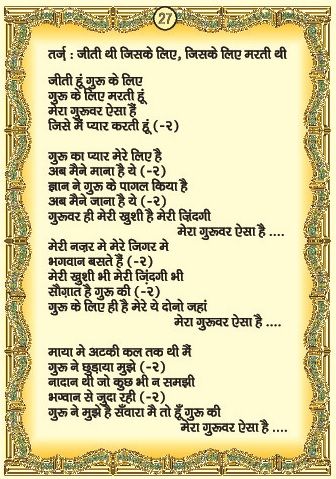 27
तर्ज़ : जीती थी जिसके लिए, जिसके लिए मरती थी
जीती हूं गुरू के लिए
गुरू के लिए मरती हूं
मेरा गुरूवर ऐसा हैं
जिसे मैं प्यार करती हूं (-२)
गुरू का प्यार मेरे लिए है
अब मैने माना है ये (-२)
ज्ञान ने गुरू के पागल किया है
अब मैने जाना है ये (-२)
गुरूवर ही मेरी खुशी है मेरी ज़िंदगी
मेरा गुरूवर ऐसा है ....
मेरी नज़र मे मेरे जिगर मे
भगवान बसते हैं (-२)
मेरी खुशी भी मेरी ज़िंदगी भी
सौग़ात है गुरू की (-२)
गुरू के लिए ही है मेरे ये दोनो जहां
मेरा गुरूवर ऐसा है ....
माया मे अटकी कल तक थी मैं
गुरू ने छुड़ाया मुझे (-२)
नादान थी जो कुछ भी न समझी
भग्वान से जुदा रही (-२)
गुरू ने मुझे है सँवारा मै तो हूँ गुरू की
मेरा गुरूवर ऐसा है ....